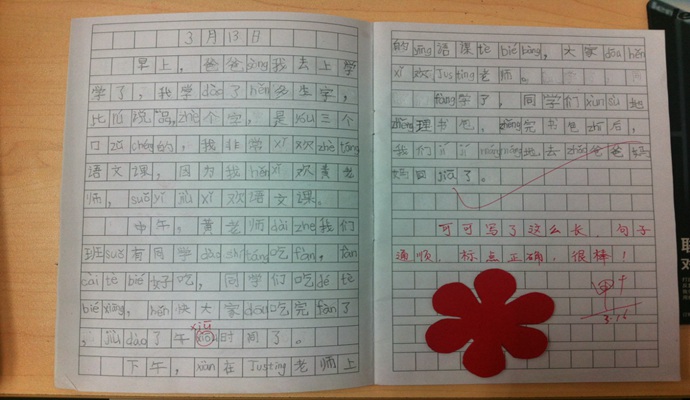 3月13日
早上，爸爸sòng我去上学
学了，我学dào了hěn多生字，
比rú说“品”zhè个字，是yóu三个
口zǔ chéng的，我非常xǐ欢zhè táng
语文课，因为我hěn xǐ欢黄老
师，suǒ yǐ jiù xǐ欢语文课。
中午，黄老师dài zhe我们
班suǒ有同学dào shí táng吃fàn，fàn
cài tè bié好吃，同学们吃dé tè
bié xiāng，hěn快大家dōu吃完fàn了
，jiù dào了午xiū时间了。
下午，xiàn在Justing老师上
的yīng语课tè bié bàng，大家dōu hěn
xǐ欢Justing老师。
fàng学了，同学们xùn sù
zhěng理书包，zhěng完书包zhī后，
我们
去zhǎo爸爸妈
了。
可可写了这么长，句子
通顺，标点正确，很棒！
甲+
3.16